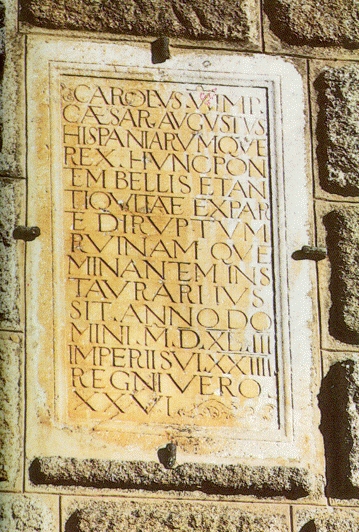 CAROLVS V IMP
CÆSAR AVGVSTVS
HISPANIARVMQVE
REX HVNC PON
TEM BELLIS ET AN
TIQVITATE EX PAR
E DIRVPTVM
RVINAM QVE
MINANTEM INS
TAVRARI IVS
SIT ANNO DO
MINI M.D.XLIII
IMPERII SVI XXIIII
REGNI VERO
XXVI